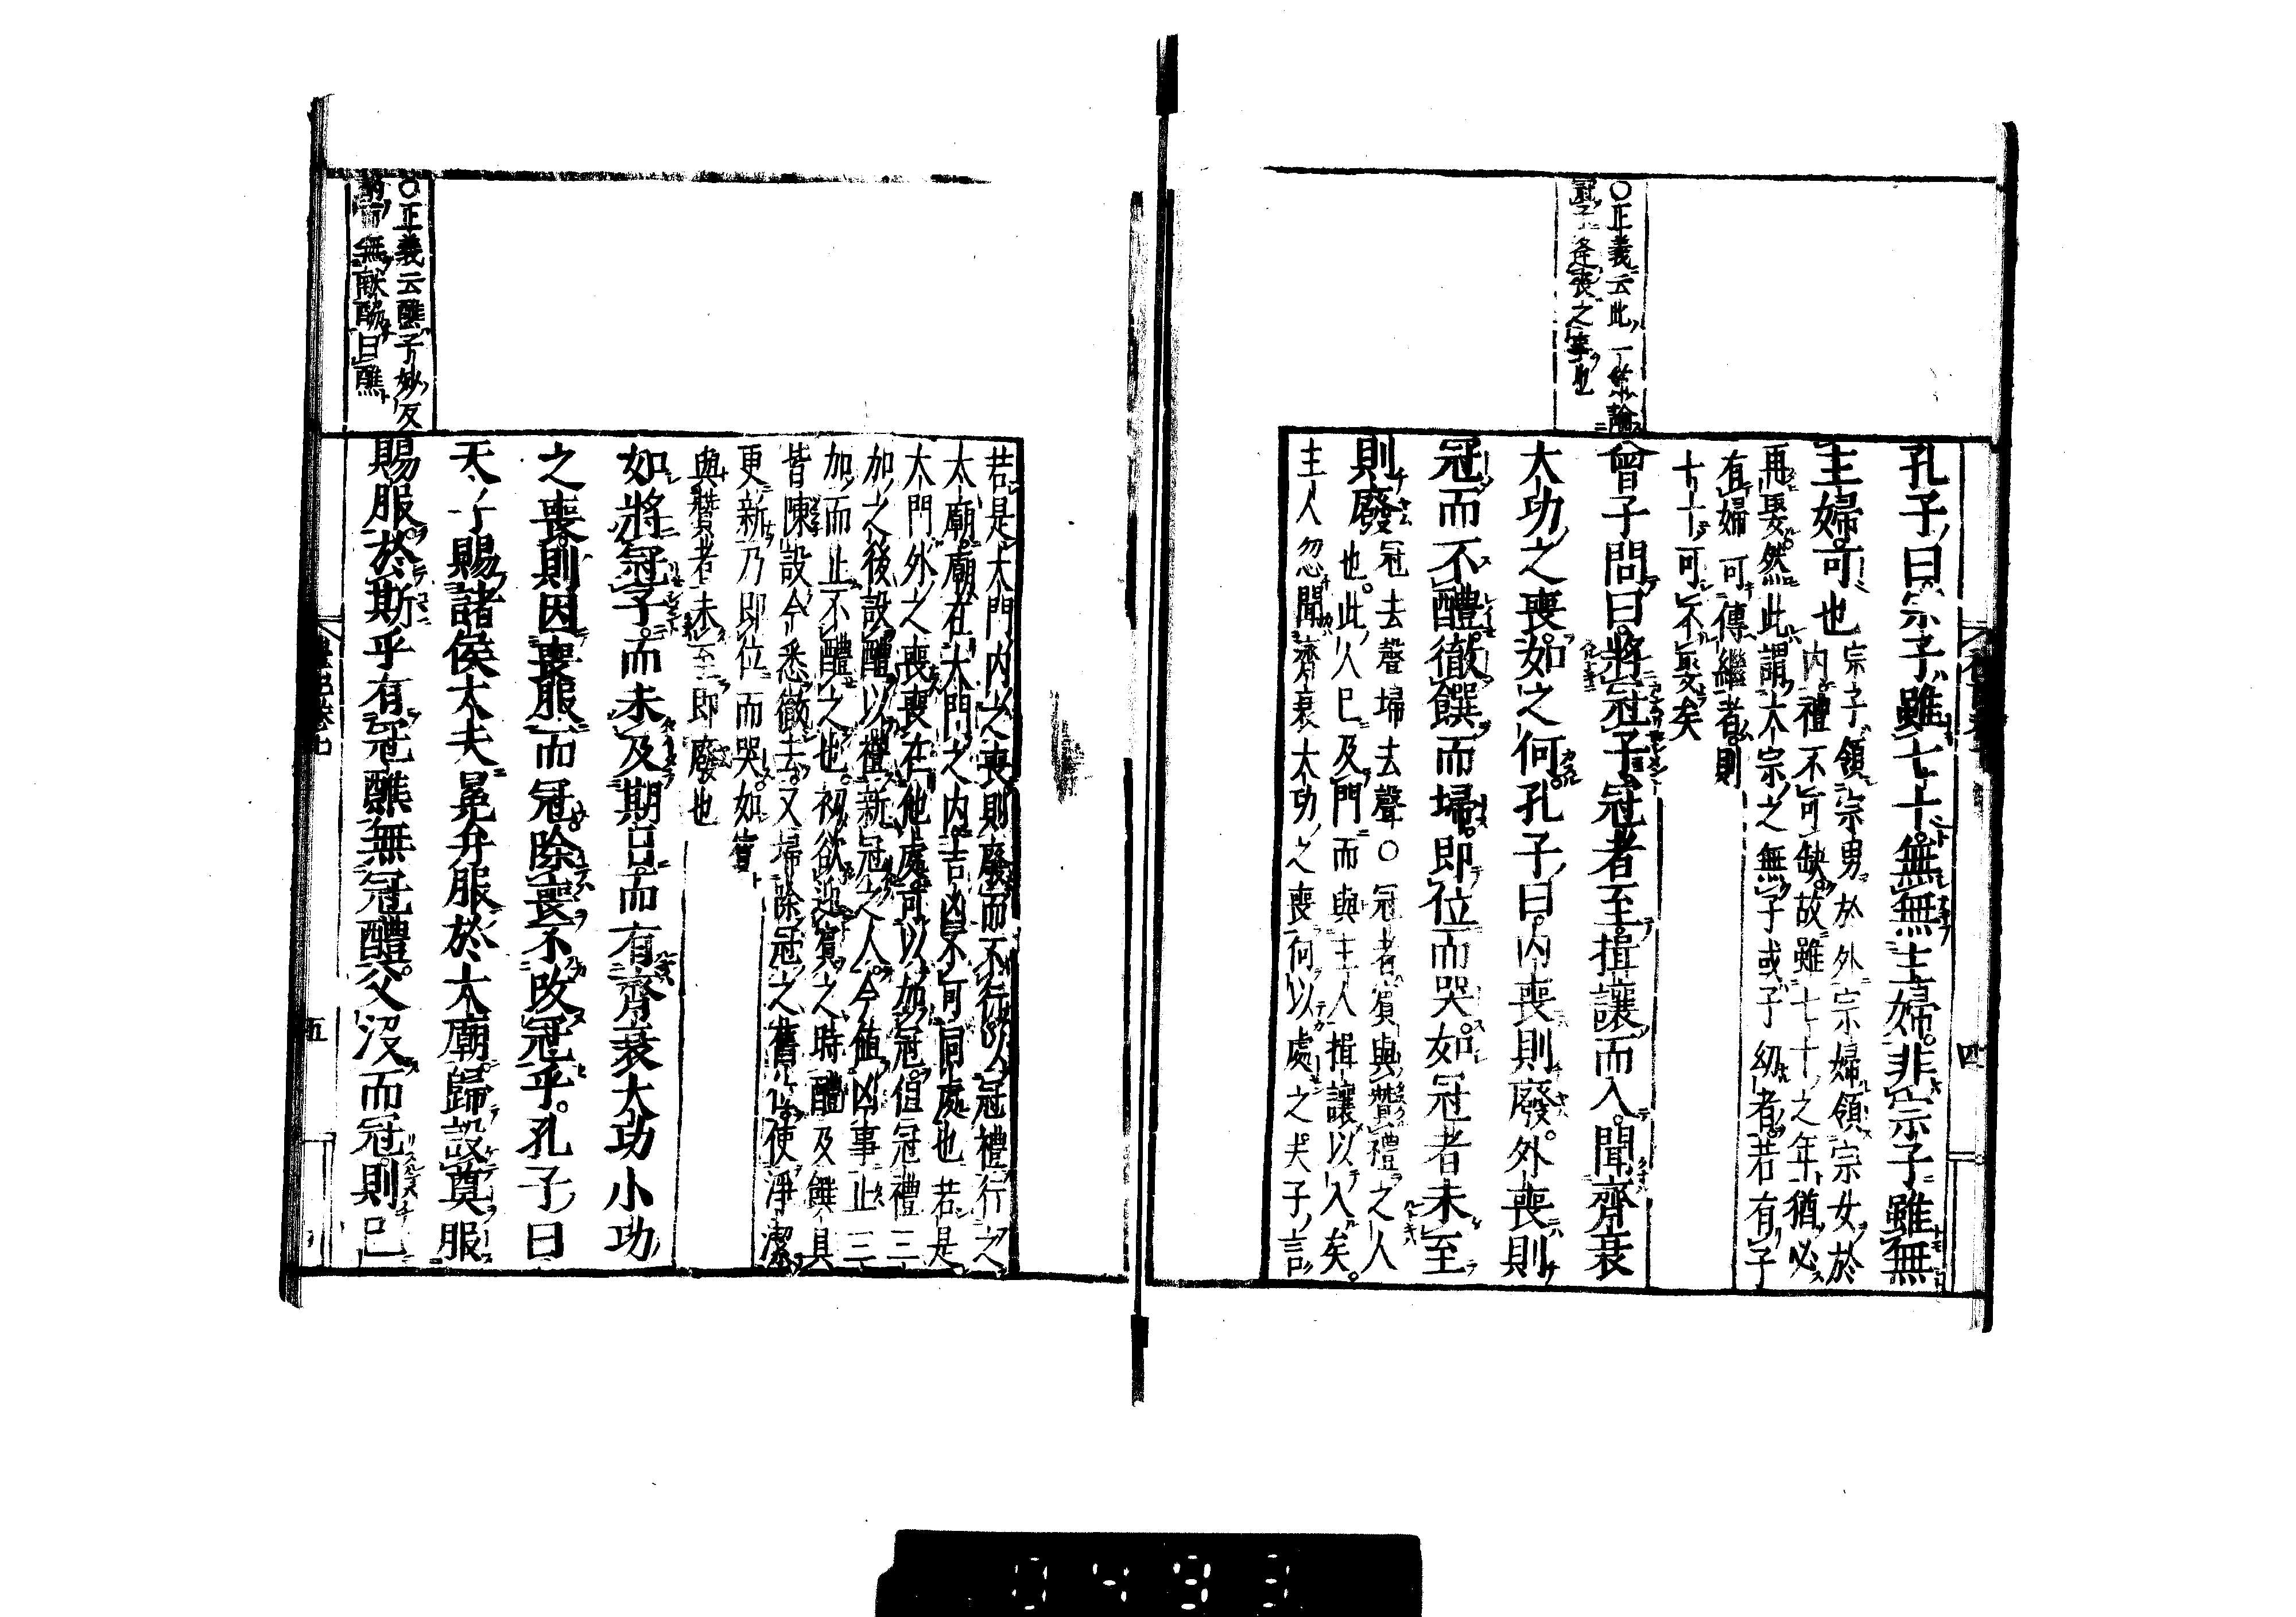 孔子曰宗子雖七十無無主婦非宗子雖無
主婦可也宗子領宗男於外宗婦領宗女於
内禮不可缺故雖七十之年猶必
再娶然此謂大宗之無子或子幼者若有子
有婦可傳繼者則
七十可不娶矣
○正義云此一節論
冠子逢喪之事也
曾子問曰將冠子冠者至揖讓而入聞齊衰
大功之喪如之何孔子曰内喪則廢外喪則
冠而不醴徹饌而埽即位而哭如冠者未至
則廢冠去聲埽去聲○冠者賓與贊禮之人
也此人已及門而與主人揖讓以入矣
主人忽聞齊衰大功之喪何以處之夫子言
若是大門内之喪則廢而不行以冠禮行之
太廟廟在大門之内吉凶不可同處也若是
大門外之喪喪在他處可以加冠但冠禮三
加之後設醴以禮新冠之人今値凶事止三
加而止不醴之也初欲迎賓之時醴及饌具
皆陳設今悉徹去又埽除冠之舊位使淨潔
更新乃即位而哭如賓
與贊者未至即廢也
如將冠子而未及期日而有齊衰大功小功
之喪則因喪服而冠除喪不改冠乎孔子曰
天子賜諸侯大夫冕弁服於太廟歸設奠服
○正義云醮子妙反
酌而無献酬曰醮
賜服於斯乎有冠醮無冠醴父沒而冠則已